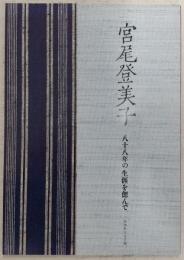 宮尾登美子
八十八年の生涯を偲んで